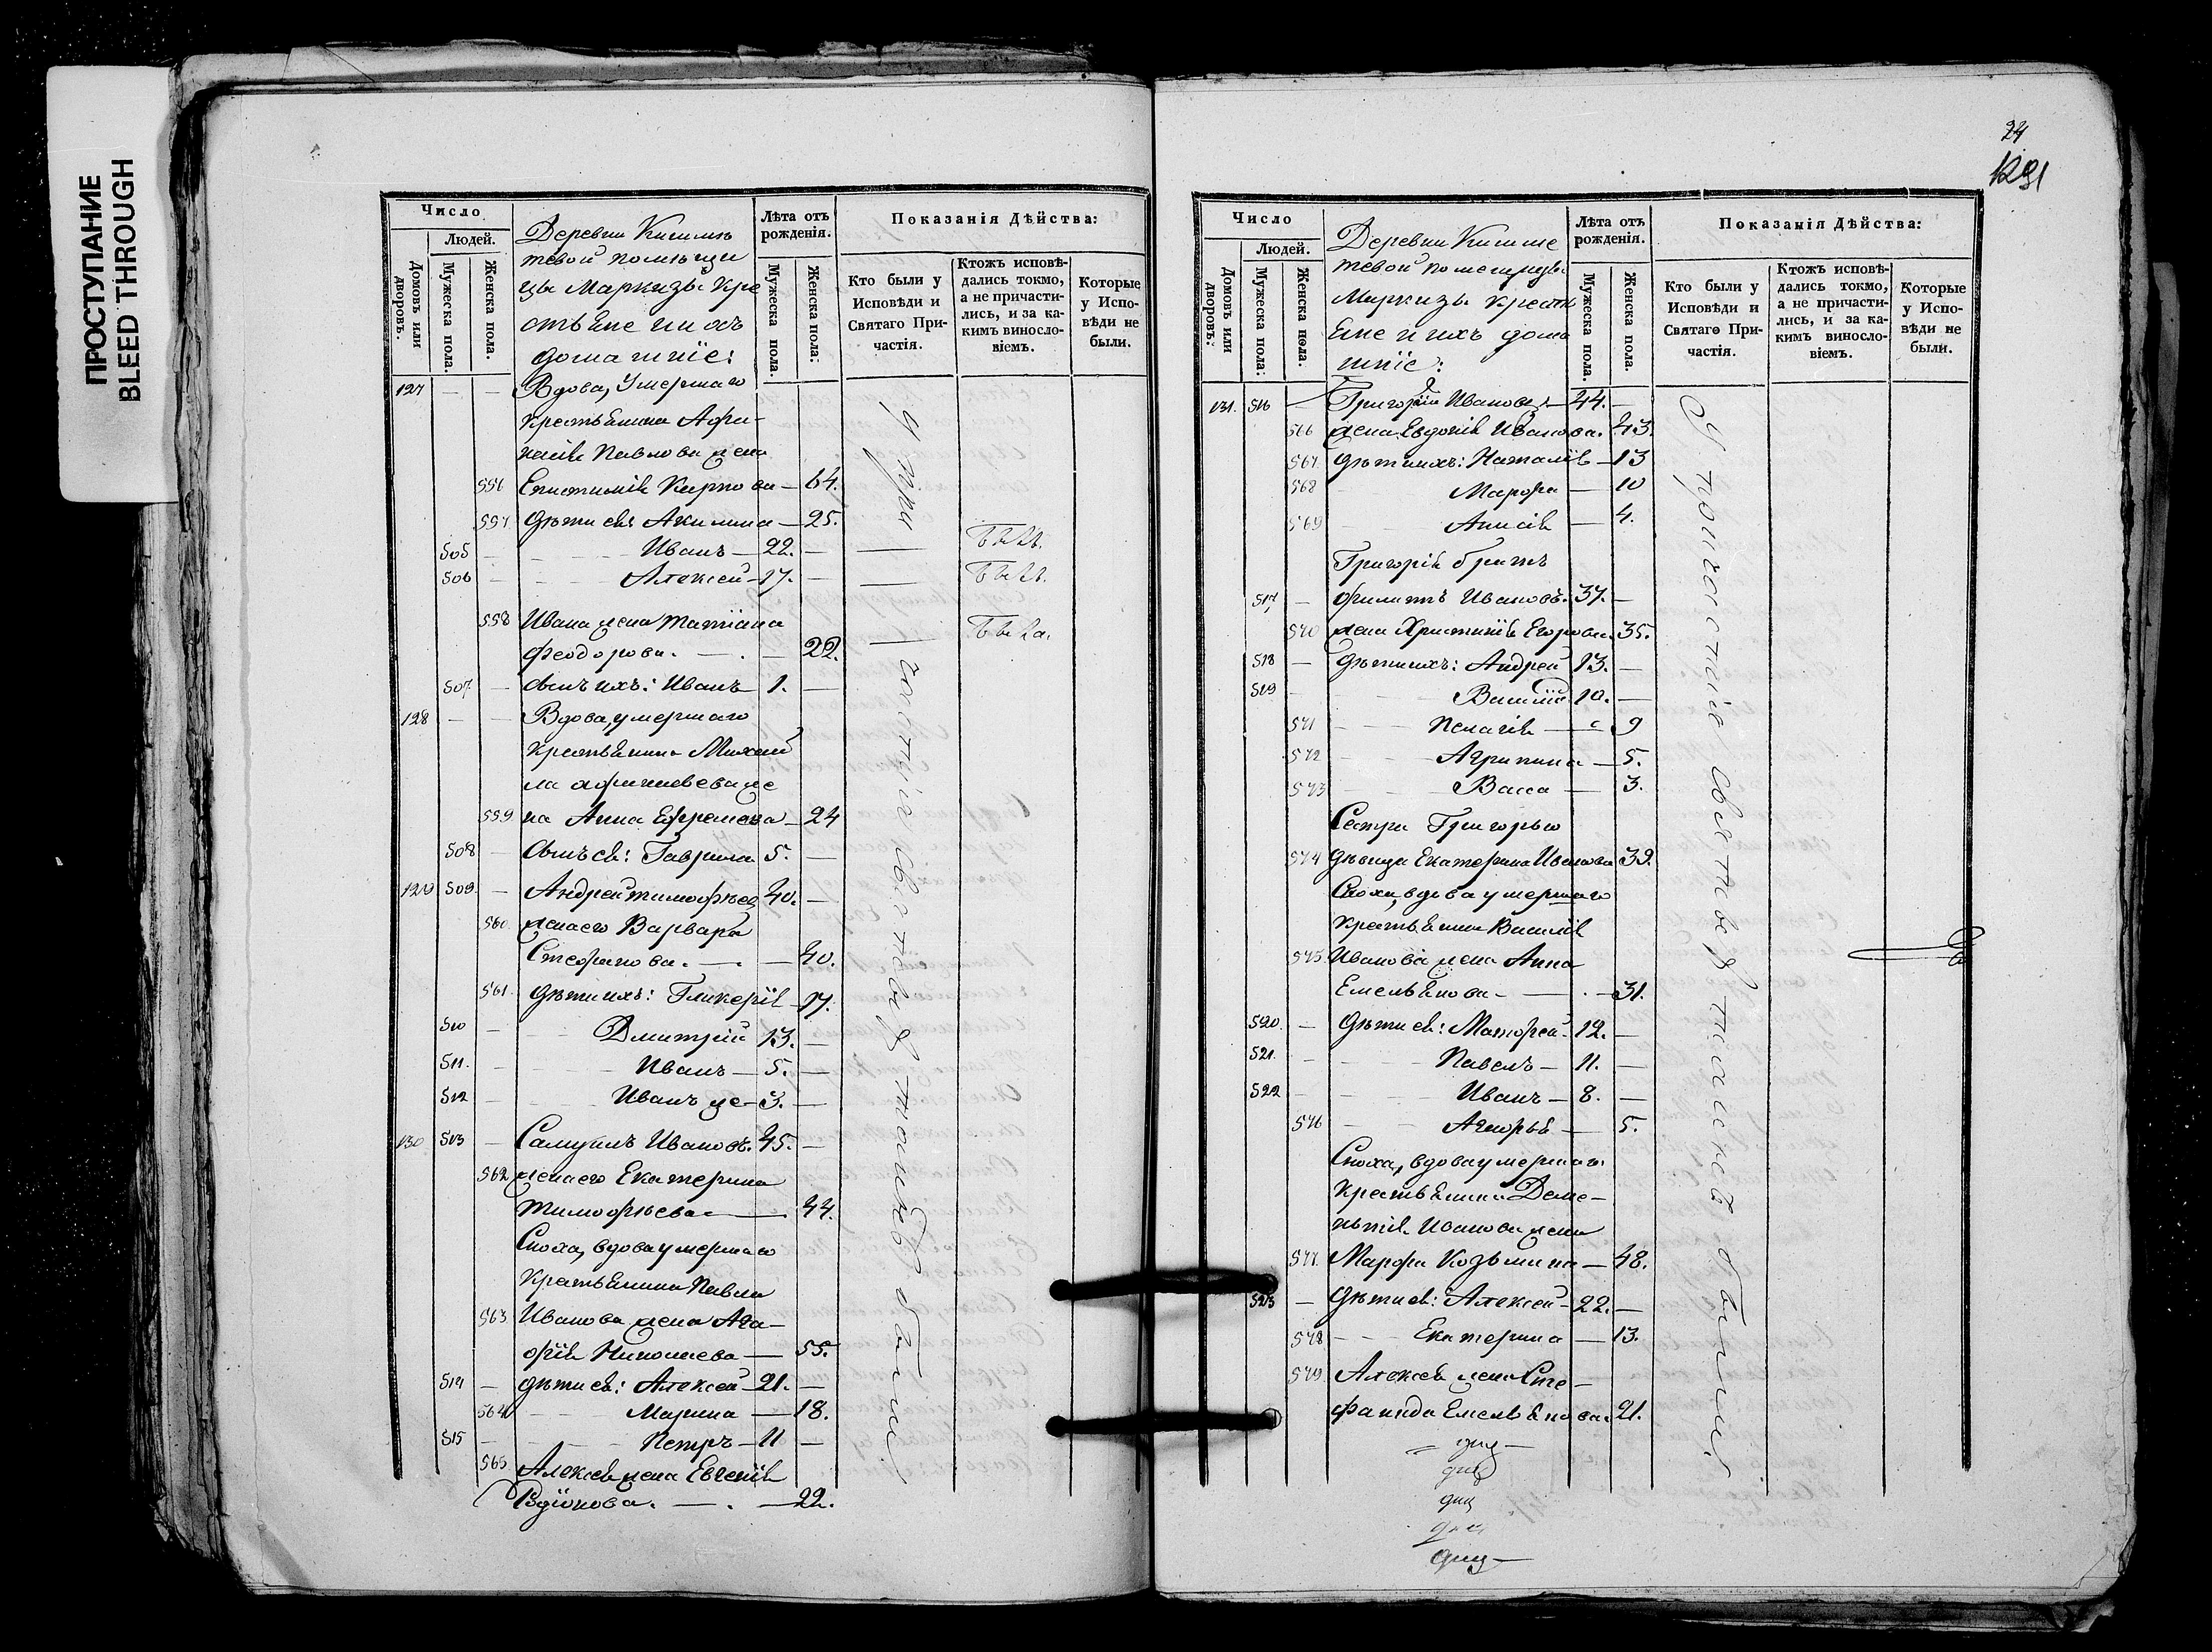 ПРОСТУПАНИЕ
BLEED THROUGH
Число
Людей.
Домовъ или дворовъ.
Мужеска пола.
Женска пола.
Деревни Кишмя
тевой помѣщи
цы Маркизы Кре
стьяне и ихъ
домашніе:
Лѣта отъ рожденія.
Мужеска пола.
Женска пола:
Показанія Дѣйства:
Кто были у Исповѣди и Святаго Причастія.
Ктожъ исповѣдались токмо, а не причастились, и за какимъ винословіемъ.
Которые у Исповѣди не были.
127 — — Вдова, Умершаго
крестьянина Афа-
насія Павлова жена
556 Епистимія Карпова — 64.
557 дѣти ея: Акилина — 25.
505 — Иванъ — 22. — былъ.
506 — Алексей — 17. — былъ.
558 Ивана жена Татіана
Феодорова. — 22. была.
507 — сынъ ихъ: Иванъ 1. —
128 — — Вдова, умершаго
крестьянина Михай
ла Афанасьева же
559 на Анна Ефремова — 24
508 — сынъ ея: Гаврила 5. —
129 509. — Андрей Тимофѣев 40. —
560 жена его Варвара
Стефанова. — 40.
561 дѣти ихъ: Гликерія — 17.
510 — Дмитрій 13. —
511. — Иванъ — 5. —
512 — Иванъ же — 3. —
130 513 — Самуилъ Ивановъ. 45. —
562 жена его Екатерина
Тимофѣева — 44.
Сноха, вдова умершаго
Крестьянина Павла
563 Иванова жена Ага-
фія Николаева — 55.
514 — дѣти ея: Алексей — 21. —
564 Марина — 18.
515 — Петръ — 11 —
565 Алексея жена Евгенія
Родіонова. — 22.
У причастіе святыя таинсъ были
24
1291
Число
Людей.
Домовъ или дворовъ.
Мужеска пола:
Женска пола.
Деревни Кишме
тевой помещицы
Маркизы крестья
яне и ихъ дома
шніе:
Лѣта отъ рожденія.
Мужеска пола.
Женска пола.
Показанія Дѣйства:
Кто были у Исповѣди и Святаго Причастія.
Ктожъ исповѣдались токмо, а не причастились, и за какимъ винословіемъ.
Которые у Исповѣди не были.
131. 516 — Григорій Ивановъ — 44. —
566 жена Евдокія Иванова. 43.
567. дѣти ихъ: Наталія — 13
568 Марфа — 10
569 Анисія — 4.
Григорія братъ
517 — Филиппъ Ивановъ. 37. —
570 жена Христинія Егорова. 35.
518 — дѣти ихъ: Андрей 13. —
519 — Василій 10. —
571 Пелагія — 9
572 Агрипина — 5.
573 Васса — 3.
Сестра Григорья
574 дѣвица Екатерина Иванова 39.
Сноха, вдова умершаго
Крестьянина Василія
575 Иванова жена Анна
Емельянова — 31.
520. — дѣти ея: Матфей — 12. —
521. — Павелъ — 11. —
522 — Иванъ — 8. —
576 — 5.
Сноха, вдова умершаго
Крестьянина Деме-
нтія Иванова жена
577. Марфа Козьмина — 48.
523 — дѣти ея: Алексей — 22. —
578 Екатерина — 13.
579 Алексея жена Сте-
фанида Емельянова. 21.
У причастіе святыя таинсъ были